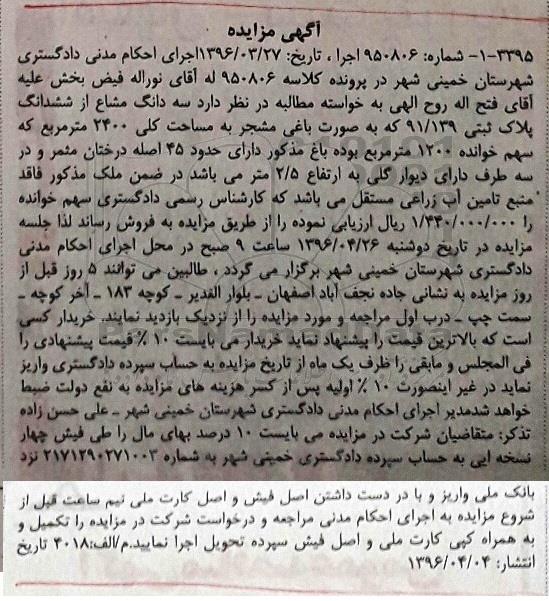 آگهی مزایده
۳۳۹۵-۱- شماره: ۹۵۰۸۰۶ اجرا ، تاریخ: ۱۳۹۶/۰۳/۲۷اجرای احکام مدنی دادگستری
شهرستان خمینی شهر در پرونده کلاسه ۹۵۰۸۰۶ له آقای نوراله فیض بخش علیه
آقای فتح اله روح الهی به خواسته مطالبه در نظر دارد سه دانگ مشاع از ششدانگ
پلاک ثبتی ۹۱/۱۳۹ که به صورت باغی مشجر به مساحت کلی ۲۴۰۰ مترمربع که
سهم خوانده ۱۲۰۰ مترمربع بوده باغ مذکور دارای حدود ۴۵ اصله درختان مثمر و در
سه طرف دارای دیوار گلی به ارتفاع ۲/۵ متر می باشد در ضمن ملک مذکور فاقد
منبع تامین آب زراعی مستقل می باشد که کارشناس رسمی دادگستری سهم خوانده
را ۱/۴۴۰/۰۰۰/۰۰۰ ریال ارزیابی نموده را از طریق مزایده به فروش رساند لذا جلسه
مزایده در تاریخ دوشنبه ۱۳۹۶/۰۴/۲۶ ساعت ۹ صبح در محل اجرای احکام مدنی
دادگستری شهرستان خمینی شهر برگزار می گردد ، طالبین می توانند ۵ روز قبل از
روز مزایده به نشانی جاده نجف آباد اصفهان ـ بلوار الغدیر ـ کوچه ۱۸۳ ـ آخر کوچه ـ
سمت چپ ـ درب اول مراجعه و مورد مزایده را از نزدیک بازدید نمایند. خریدار کسی
است که بالاترین قیمت را پیشنهاد نماید خریدار می بایست ۱۰ ٪ قیمت پیشنهادی را
فی المجلس و مابقی را ظرف یک ماه از تاریخ مزایده به حساب سپرده دادگستری واریز
نماید در غیر اینصورت ۱۰ ٪ اولیه پس از کسر هزینه های مزایده به نفع دولت ضبط
خواهد شدمدیر اجرای احکام مدنی دادگستری شهرستان خمینی شهر ـ علی حسن زاده
تذکر: متقاضیان شرکت در مزایده می بایست ۱۰ درصد بهای مال را طی فیش چهار
نسخه ایی به حساب سپرده دادگستری خمینی شهر به شماره ۲۱۷۱۲۹۰۲۷۱۰۰۳ نزد
بانک ملی واریز و با در دست داشتن اصل فیش و اصل کارت ملی نیم ساعت قبل از
شروع مزایده به اجرای احکام مدنی مراجعه و درخواست شرکت در مزایده را تکمیل و
به همراه کپی کارت ملی و اصل فیش سپرده تحویل اجرا نمایید.م/الف:۴۰۱۸ تاریخ
انتشار: ۱۳۹۶/۰۴/۰۴